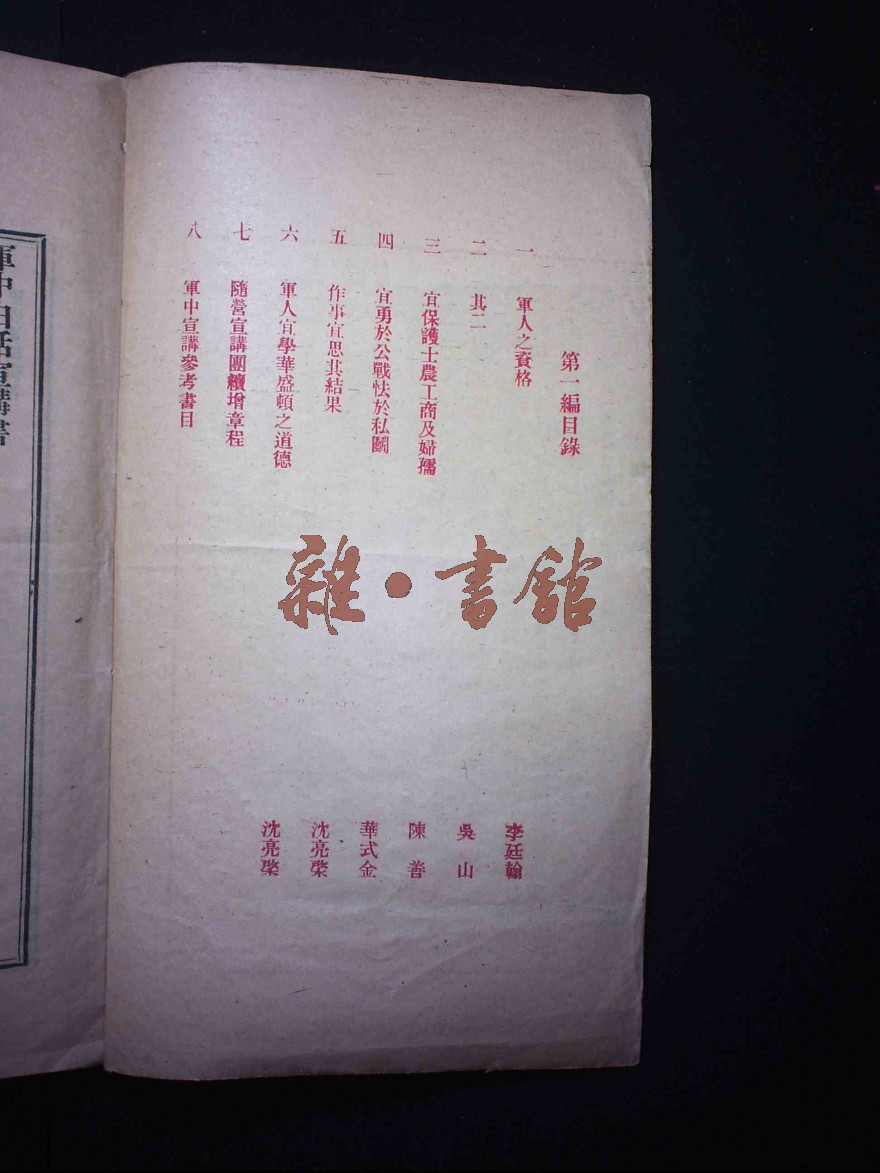 第一編目錄
一 軍人之資格 李廷翰
二 其二 吳山
三 宜保護士農工商及婦孺 陳善
四 宜勇於公戰怯於私鬬 華式金
五 作事宜思其結果 沈亮棨
六 軍人宜學華盛頓之道德 沈亮棨
七 隨營宣講團續增章程
八 軍中宣講參考書目
軍中白話宣講書
雜·書館